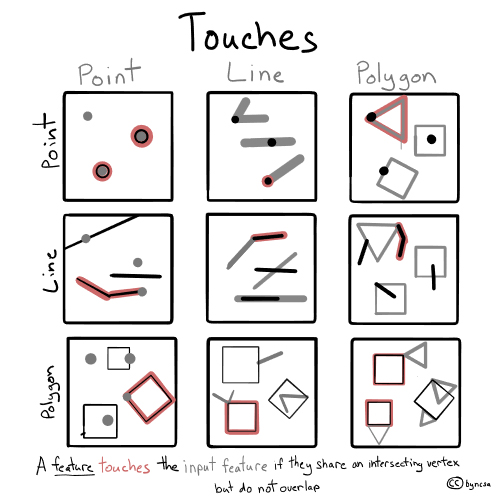 Touches
Point Line Polygon
Point
Line
Polygon
A feature touches the input feature if they share an intersecting vertex
but do not overlap
cc byncsa